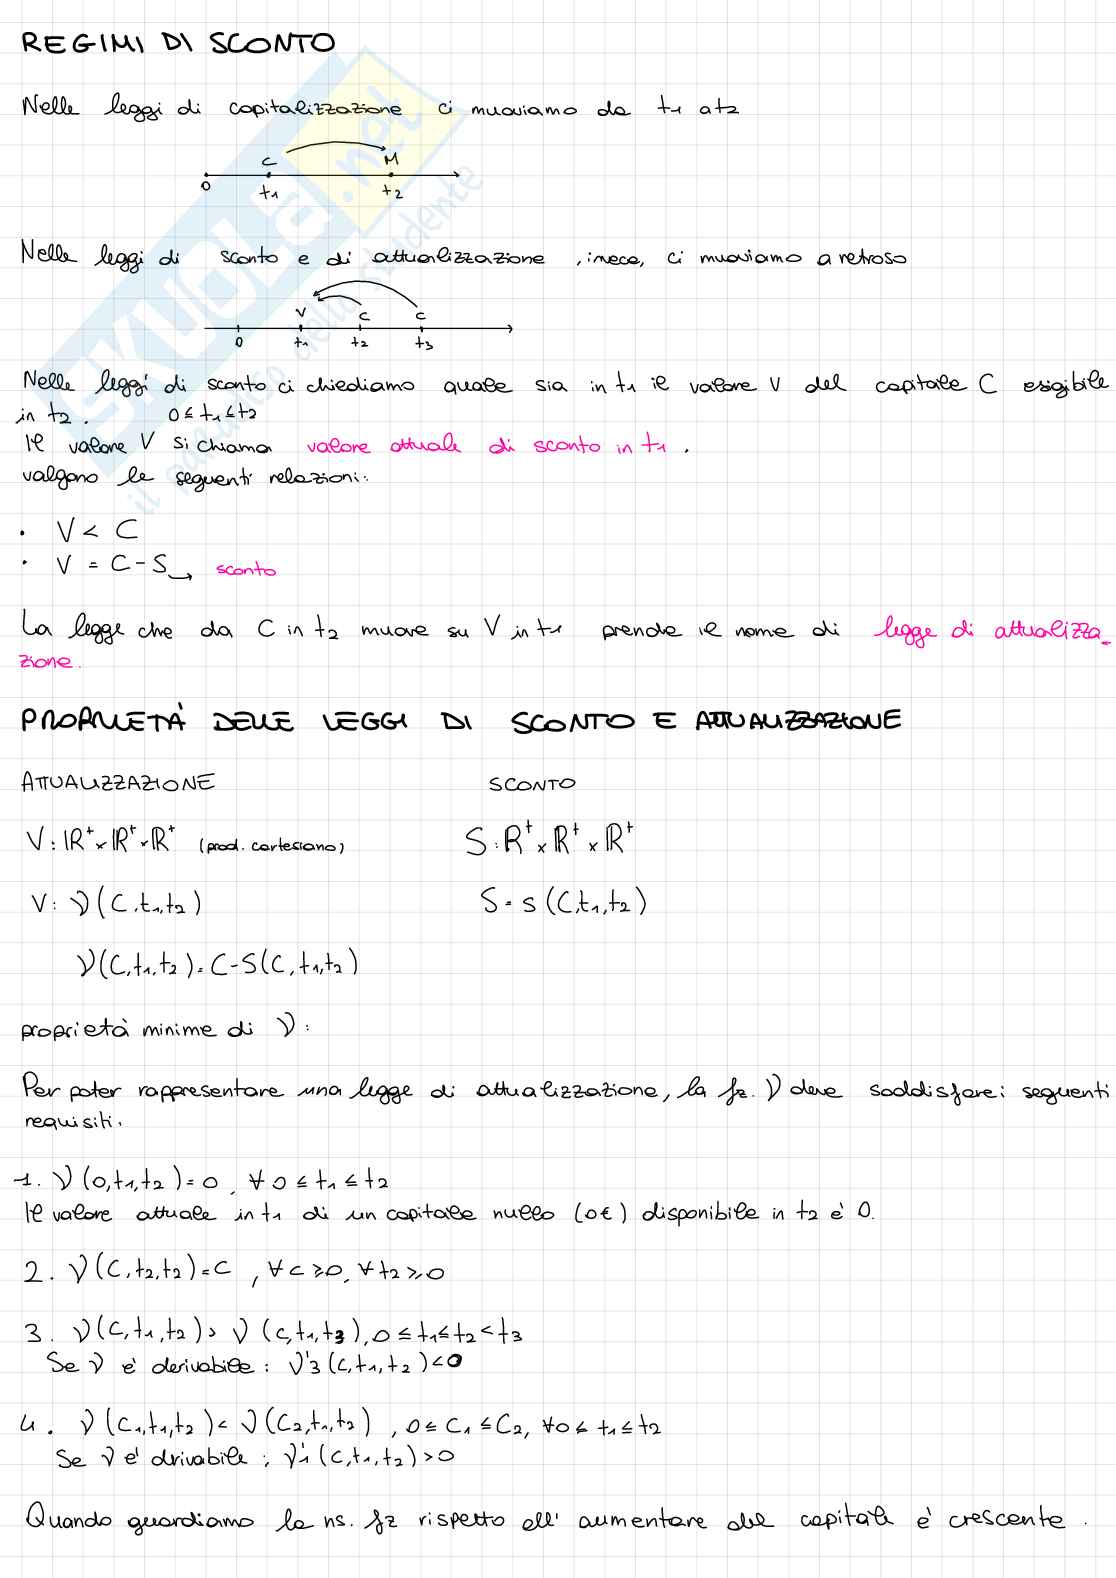 REGIMI DI SCONTO
Nelle leggi di capitalizzazione ci muoviamo da t1 a t2
C M
0 t1 t2
Nelle leggi di sconto e di attualizzazione , inece, ci muoviamo a retroso
V C C
0 t1 t2 t3
Nelle leggi di sconto ci chiediamo quale sia in t1 il valore V del capitale C esigibile
in t2. 0 ≤ t1 ≤ t2
Il valore V si chiama valore attuale di sconto in t1 .
valgono le seguenti relazioni:
• V < C
• V = C - S → sconto
La legge che da C in t2 muove su V in t1 prende il nome di legge di attualizza-
zione.
PROPRIETÀ DELLE LEGGI DI SCONTO E ATTUALIZZAZIONE
ATTUALIZZAZIONE SCONTO
V: IR⁺ x IR⁺ x IR⁺ (prod. cartesiano) S: IR⁺ x IR⁺ x IR⁺
V: ν(C,t1,t2) S = s(C,t1,t2)
ν(C,t1,t2) = C - S(C,t1,t2)
proprietà minime di ν:
Per poter rappresentare una legge di attualizzazione, la fz. ν deve soddisfare i seguenti
requisiti.
1. ν(0,t1,t2) = 0, ∀ 0 ≤ t1 ≤ t2
Il valore attuale in t1 di un capitale nullo (0€) disponibile in t2 è 0.
2. ν(C,t2,t2) = C , ∀ C ≥ 0, ∀ t2 ≥ 0
3. ν(C,t1,t2) > ν(C,t1,t3), 0 ≤ t1 ≤ t2 < t3
Se ν è derivabile: ν'3(C,t1,t2) < 0
4. ν(C1,t1,t2) < ν(C2,t1,t2) , 0 ≤ C1 ≤ C2, ∀ 0 ≤ t1 ≤ t2
Se ν è drivabile ; ν'1(C,t1,t2) > 0
Quando guardiamo la ns. fz rispetto all' aumentare del capitale è crescente .
SKUOLA.net
il paradiso dello studente